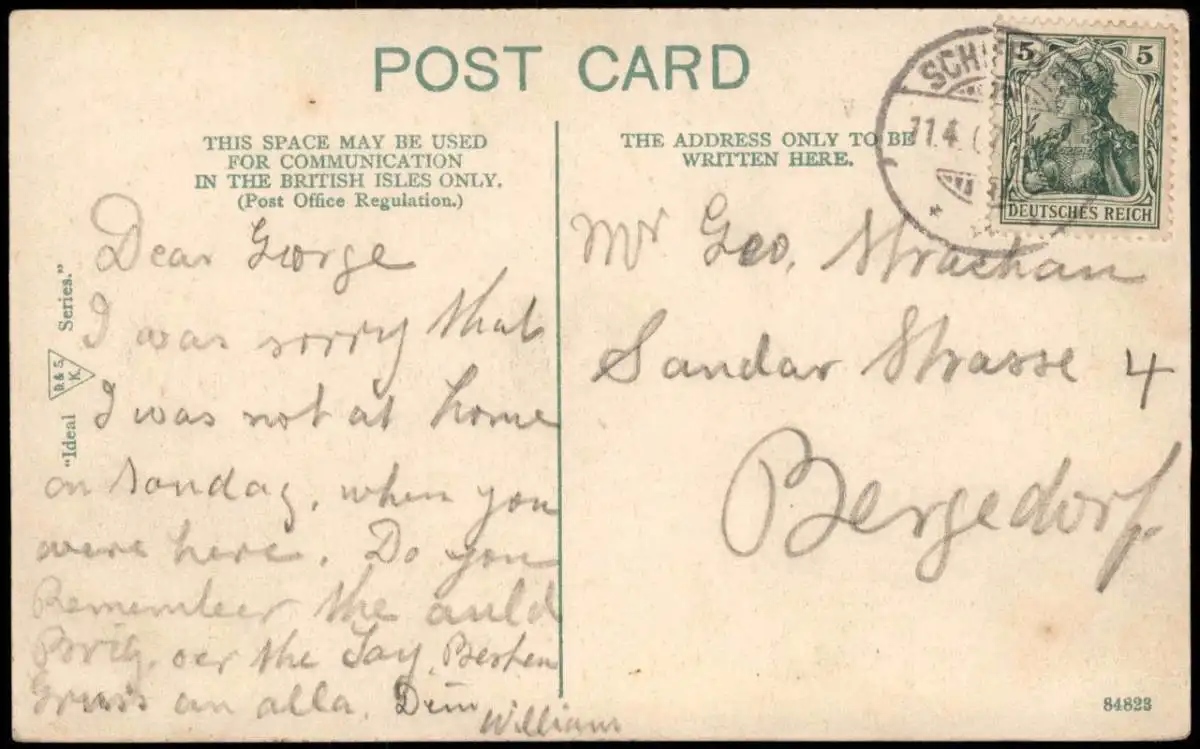 POST CARD
THIS SPACE MAY BE USED
FOR COMMUNICATION
IN THE BRITISH ISLES ONLY.
(Post Office Regulation.)
THE ADDRESS ONLY TO BE
WRITTEN HERE.
5 5
DEUTSCHES REICH
11.4
"Ideal D. & S. K. Series."
Dear George
I was sorry that
I was not at home
on sonday, when you
were here. Do you
Remember the auld
Brig, oer the Tay, Besten
Gruss an alla. Dein
William
Mr Geo. Strachan
Sandar Strasse 4
Bergedorf
84823